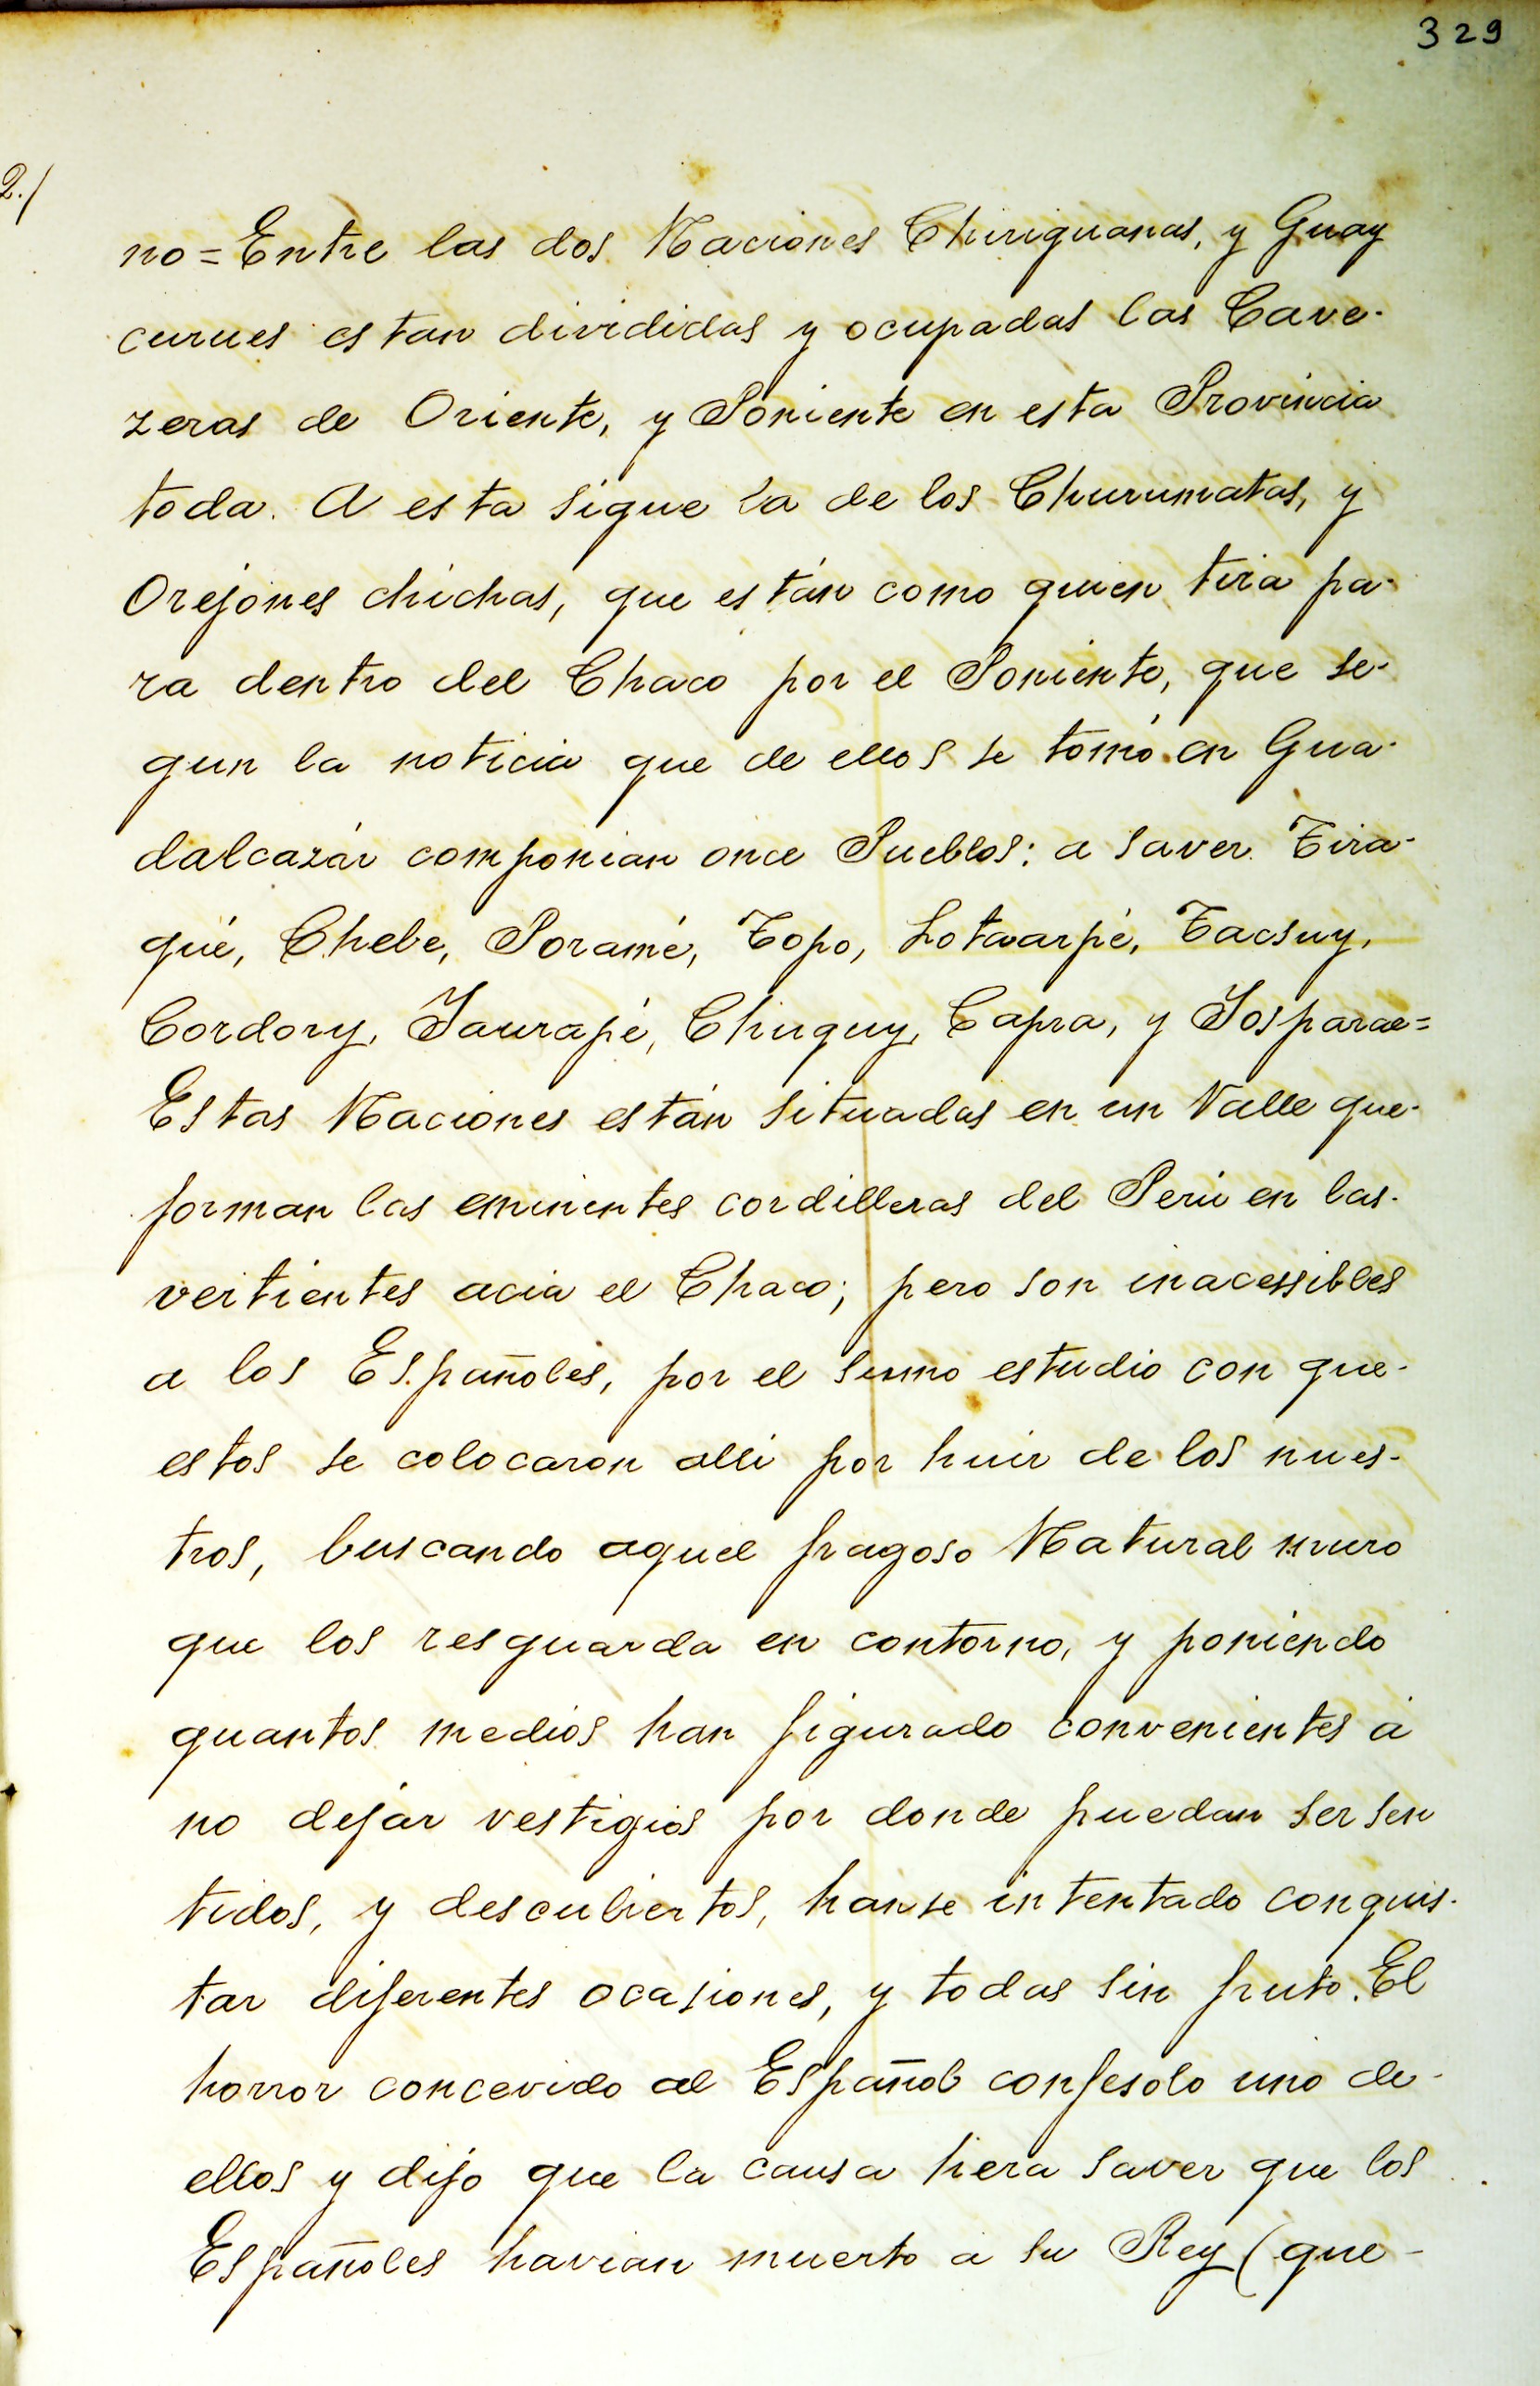 329
2./
no = Entre las dos Naciones Chiriguanas, y Guay
curues estan divididas y ocupadas las Cave-
zeras de Oriente, y Poniente en esta Provincia
toda. A esta sigue la de los Churumatas, y
Orejones chichas, que están como quien tira pa-
ra dentro del Chaco por el Poniente, que se-
gun la noticia que de ellos se tomó en Gua-
dalcazár componian once Pueblos: a saver Tira-
qué, Chebe, Poramé, Topo, Lotaarpé, Tacsuy,
Cordory, Jaurapé, Chuquy, Capra, y Josparae=
Estas Naciones están situadas en un Valle que-
forman las eminentes cordilleras del Perú en las-
vertientes acia el Chaco; pero son inacessibles
a los Españoles, por el sumo estudio con que-
estos se colocaron alli por huir de los nues-
tros, buscando aquel fragoso Natural muro
que los resguarda en contorno, y poniendo
quantos medios han figurado convenientes á
no dejar vestigios por donde puedan ser sen
tidos, y descubiertos, hanse intentado conquis-
tar diferentes ocasiones, y todas sin fruto. El
horror concevido al Español confesolo uno de-
ellos y dijo que la causa hera saver que los
Españoles havian muerto a su Rey (que-